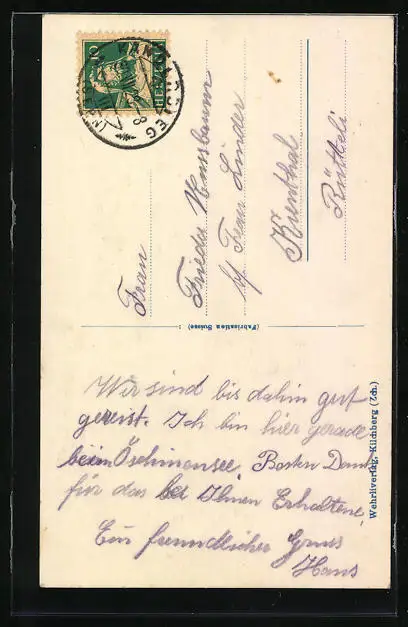 Frau
Frieda Nussbaum
b/ Frau Linder
Kienthal
Rütteli
(Fabrication Suisse)
Wehrliverlag, Kilchberg (Zch.)
Wir sind bis dahin gut
gereist. Ich bin hier gerade
beim Öschinensee, Besten Dank
für das bei Ihnen Erhaltene,
Ein freundlicher Gruss
Hans
10
HELVETIA
KANDERSTEG